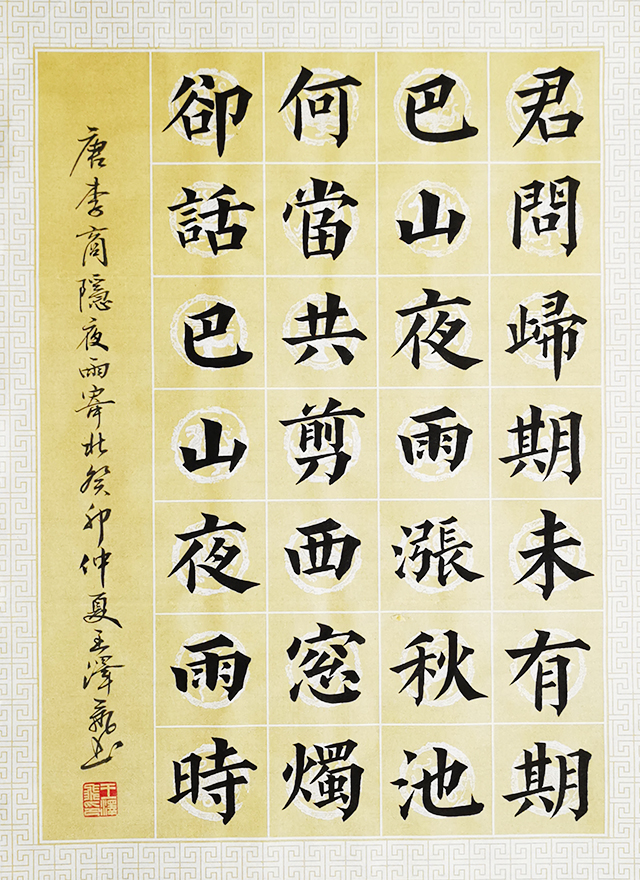 君問歸期未有期
巴山夜雨漲秋池
何當共剪西窓燭
卻話巴山夜雨時
唐李商隱夜雨寄北癸卯仲夏王澤書